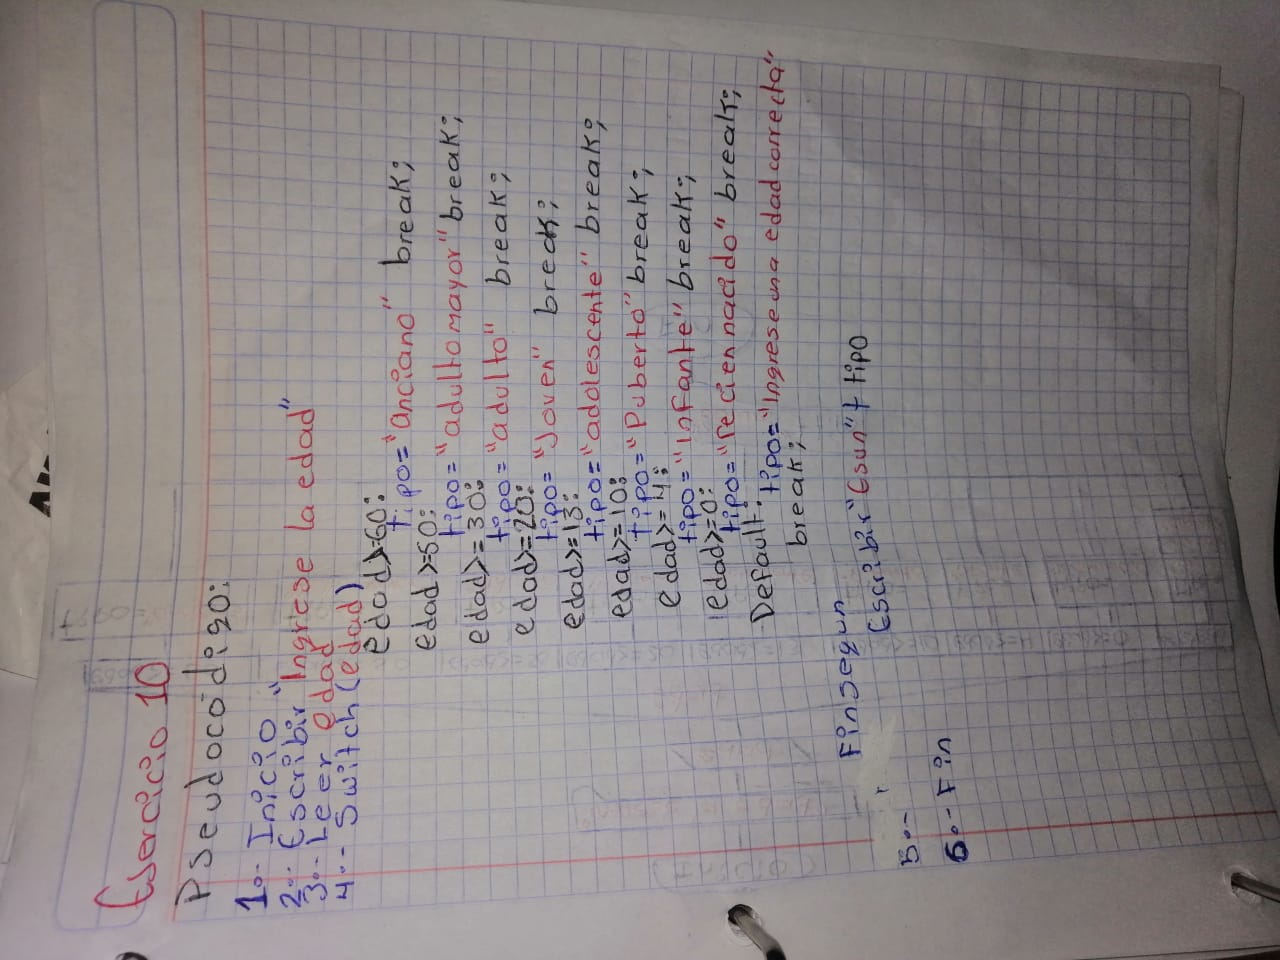 Ejercicio 10
Pseudocódigo:
1.- Inicio
2.- Escribir "Ingrese la edad"
3.- Leer edad
4.- Switch (edad)
edad>=60:
tipo="anciano" break;
edad>=50:
tipo="adulto mayor" break;
edad>=30:
tipo="adulto" break;
edad>=20:
tipo="Joven" break;
edad>=13:
tipo="adolescente" break;
edad>=10:
tipo="Puberto" break;
edad>=4:
tipo="infante" break;
edad>=0:
tipo="recien nacido" break;
Default: tipo="Ingrese una edad correcta"
break;
Finsegun
Escribir "Es un" + tipo
5.-
6.- Fin